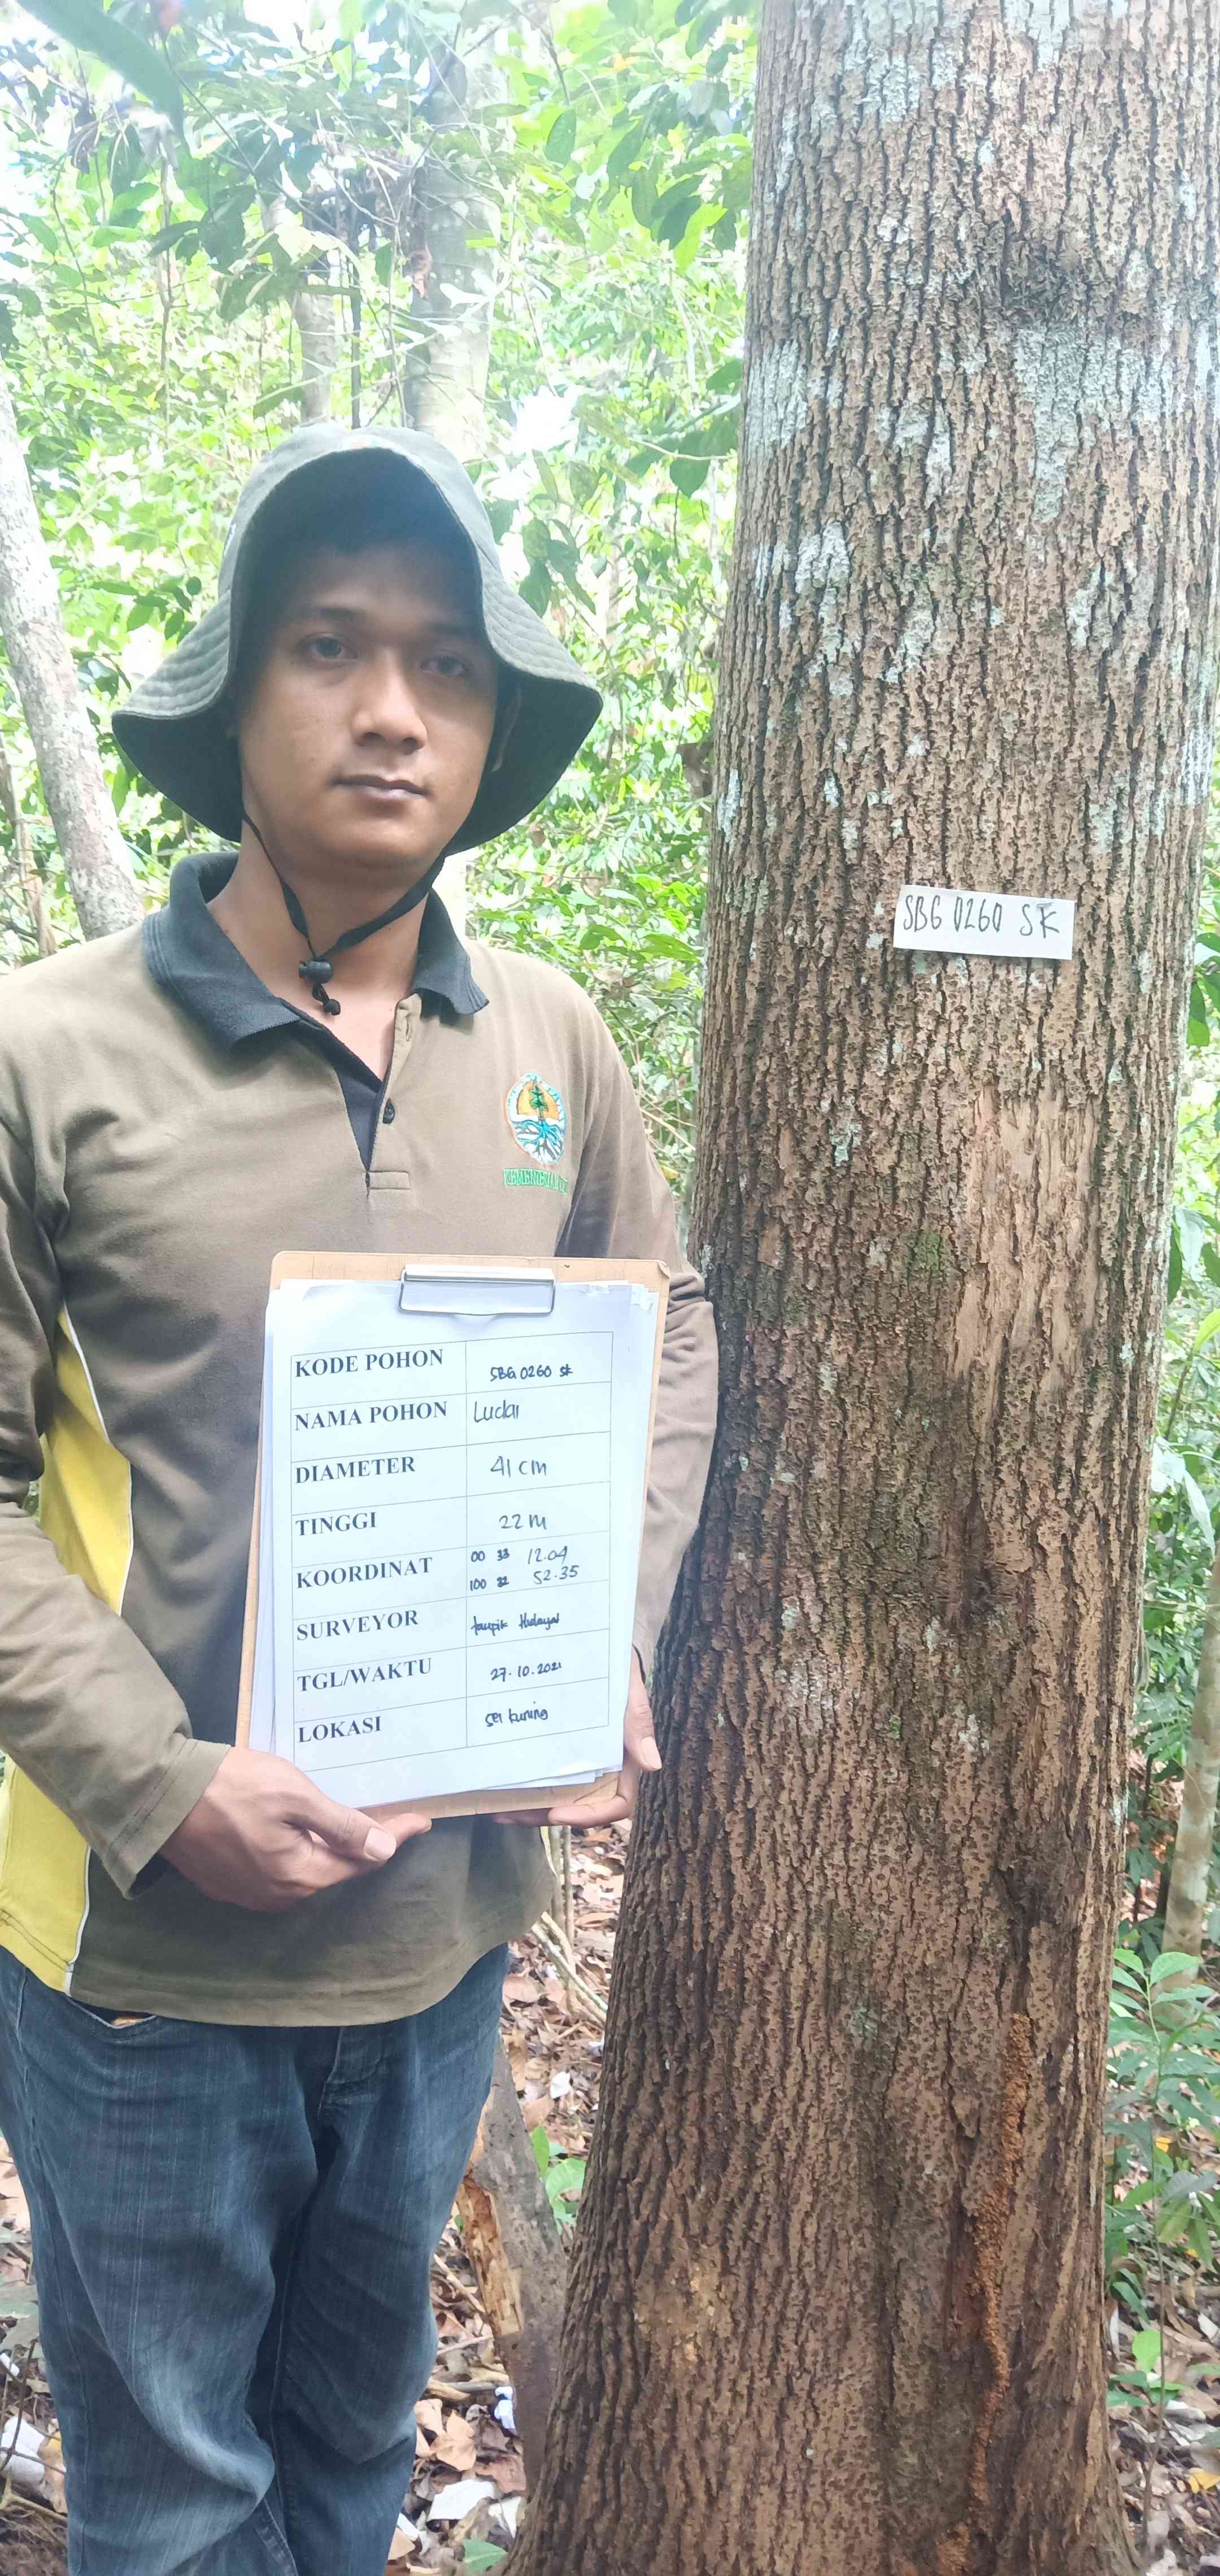 SBG 0260 SK
KODE POHON SBG 0260 SK
NAMA POHON Ludai
DIAMETER 41 cm
TINGGI 22 m
KOORDINAT 00 33 12.04
100 32 52.35
SURVEYOR taupik Hidayat
TGL/WAKTU 27.10.2021
LOKASI sei kuning